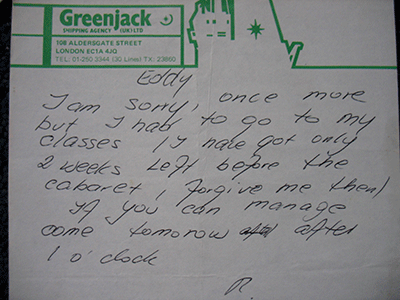 Greenjack
SHIPPING AGENCY (UK) LTD
108 ALDERSGATE STREET
LONDON EC1A 4JQ
TEL: 01-250 3344 (30 Lines) TX: 23860
Eddy
I am sorry, once more
but I had to go to my
classes (I have got only
2 weeks left before the
cabaret, forgive me then)
If you can manage
come tomorow after
1 o'clock
R.